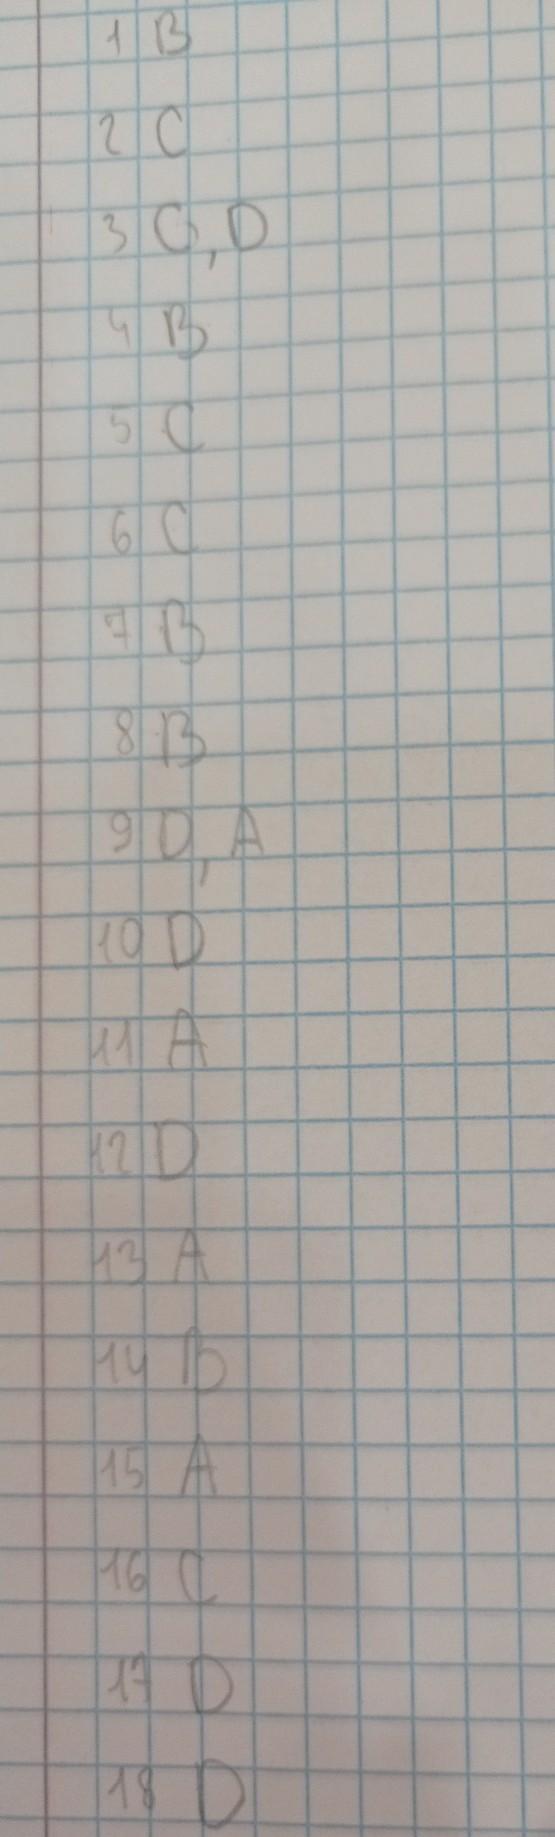 1 B
2 C
3 C, D
4 B
5 C
6 C
7 B
8 B
9 D, A
10 D
11 A
12 D
13 A
14 B
15 A
16 C
17 D
18 D